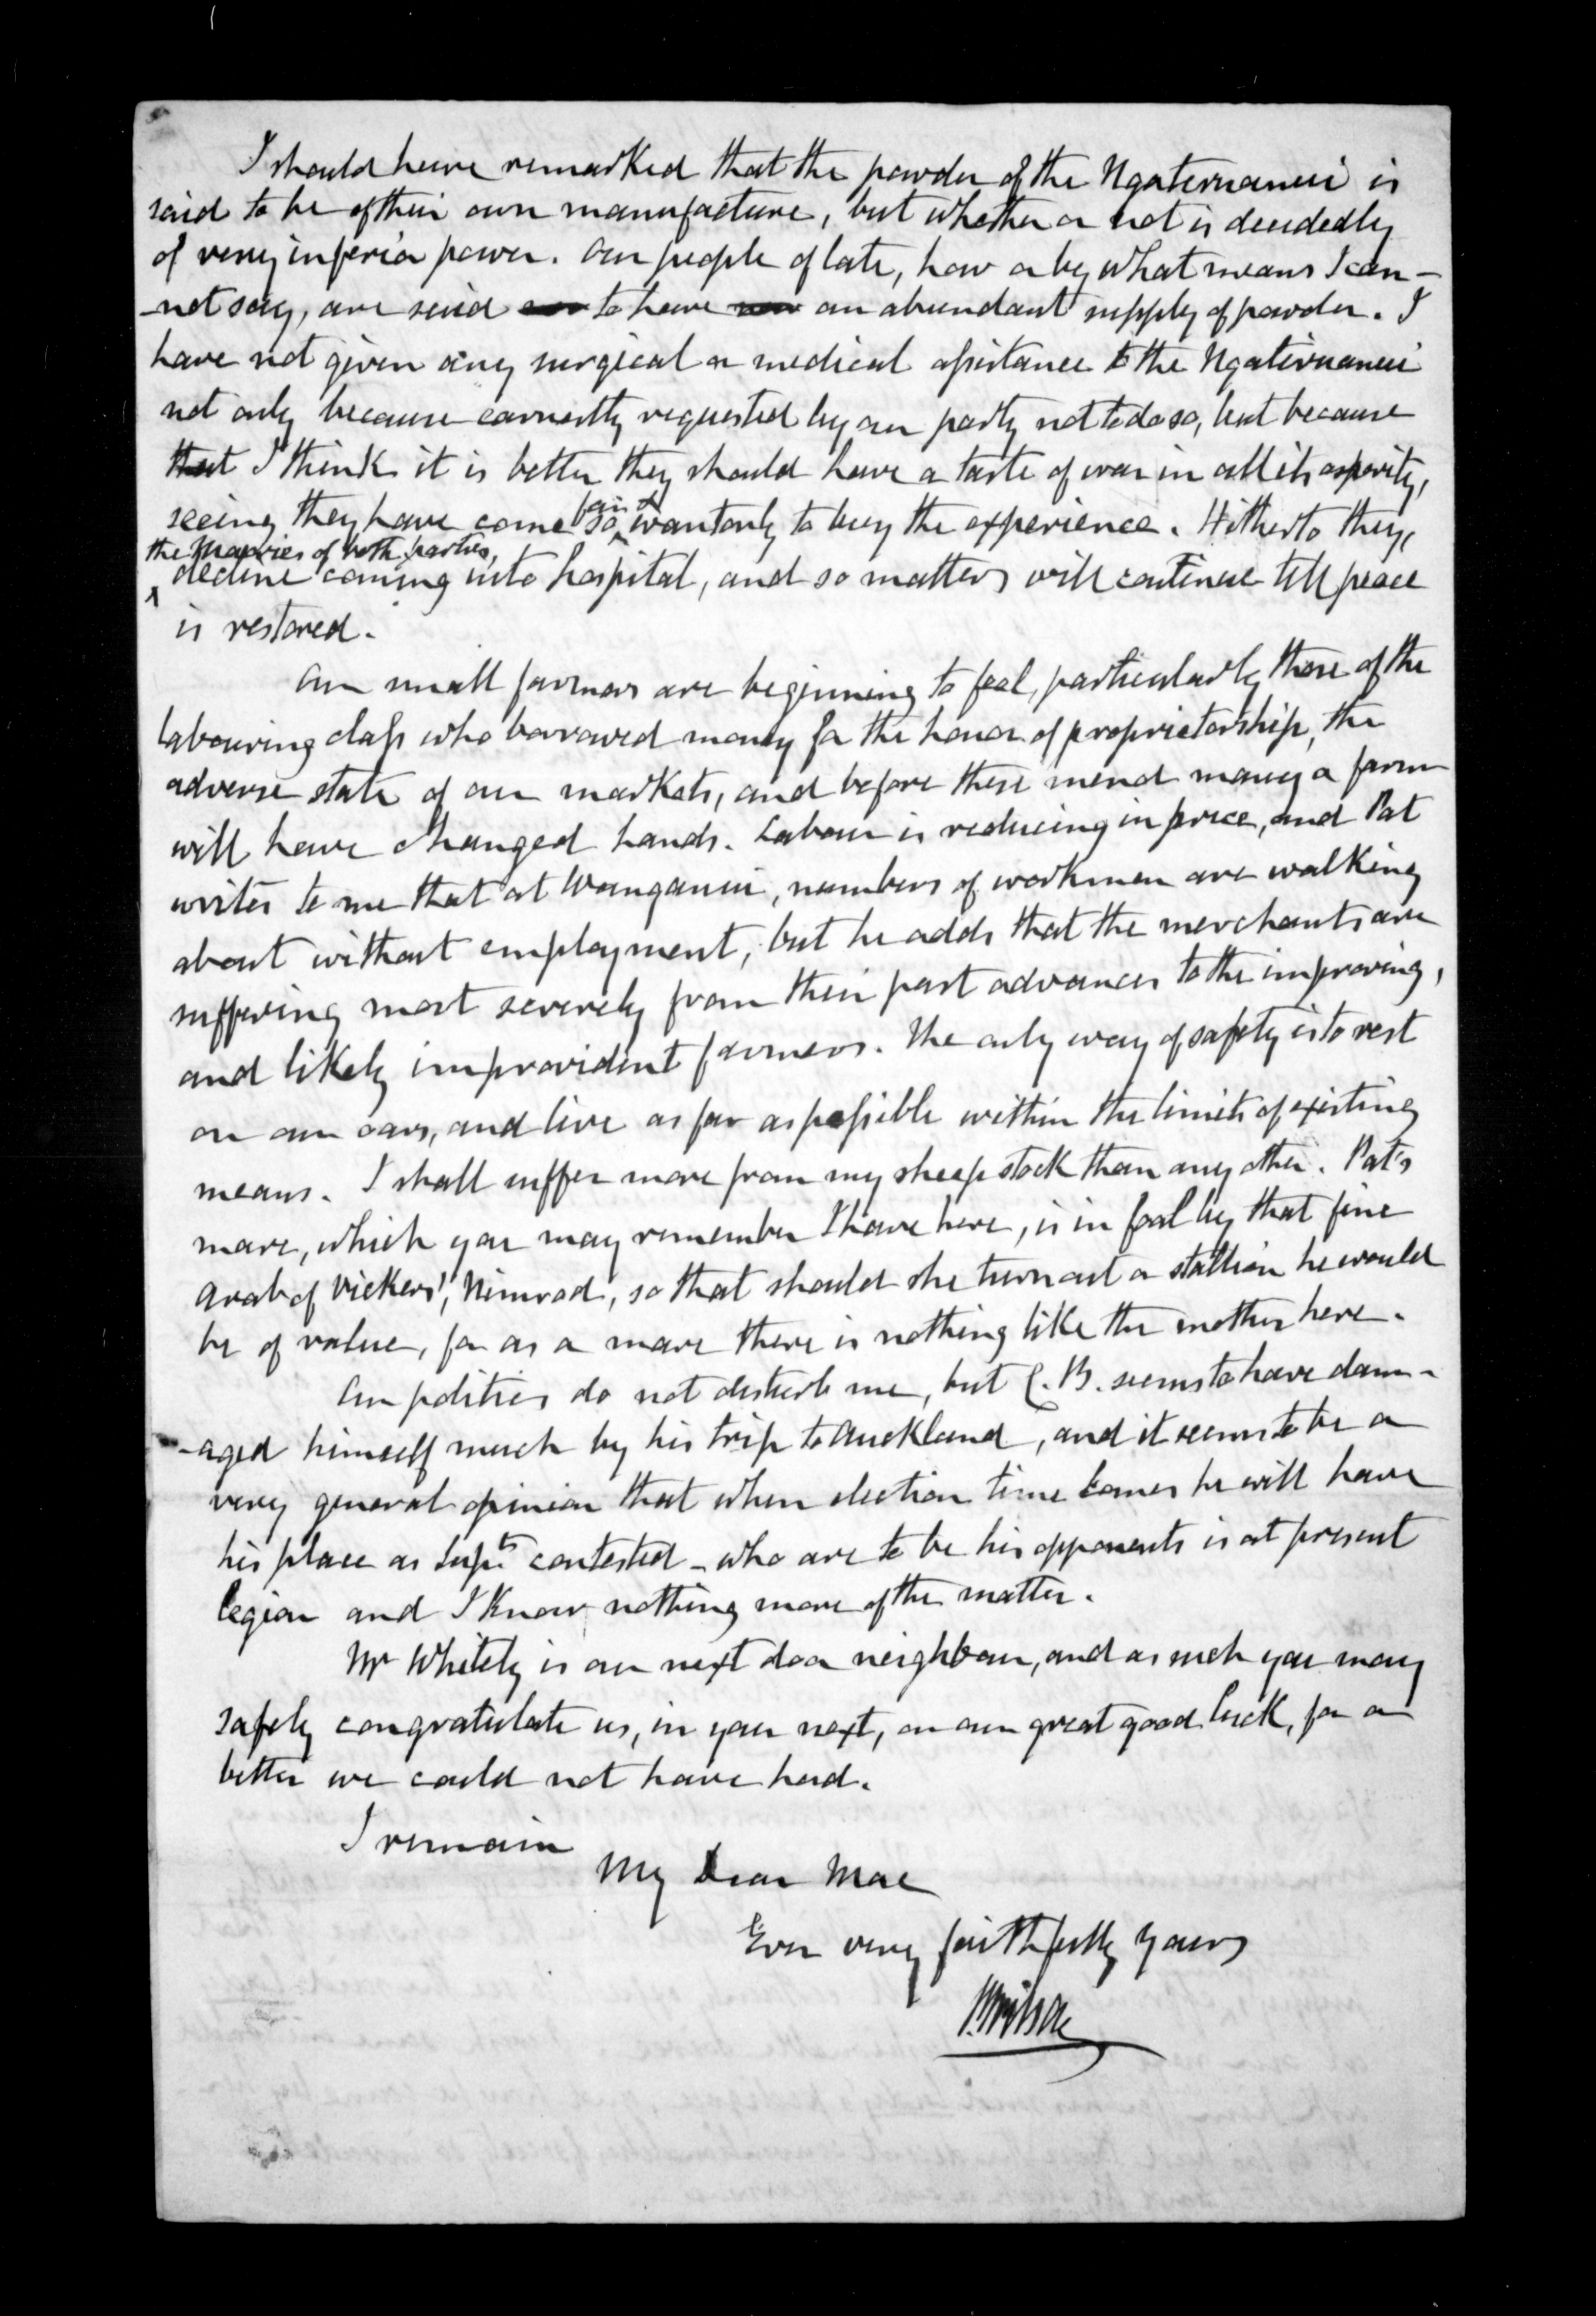 I should have remarked that the powder of the Ngateruanui is
said to be of their own manufacture, but whether or not is decidedly
of very inferior power. Our people of late, how or by what means I can-
-not say, are said to have an abundant supply of powder. I
have not given any surgical or medical assistance to the Ngatiruanui
not only because earnestly requested by our party not to do so, but because
that I think it is better they should have a taste of war in all its asperity,
seeing they have come so far wantonly to buy the experience. Hitherto they,
the Maories of both parties,
decline coming into hospital, and so matters will continue till peace
is restored.
Our small farmers are beginning to feel, particularly those of the
labouring class who borrowed money for the honor of proprietorship, the
adverse state of our markets, and before these mend many a farm
will have changed hands. Labour is reducing in price, and Pat
writes to me that at Wanganui, numbers of workmen are walking
about without employment, but he adds that the merchants are
suffering most severely from their past advances to the improving,
and likely improvident farmers. The only way of safety is to rest
on our oars, and live as far as possible within the limits of existing
means. I shall suffer more from my sheep stock than any other. Pat's
mare, which you may remember I have here, is in foal by that fine
Arab of Vickers', Nimrod, so that should she turn out a stallion he would
be of value, for as a mare there is nothing like the mother here.
Our politics do not disturb me, but C.B. seems to have dam-
-aged himself much by his trip to Auckland, and it seems to be a
very general opinion that when election time comes he will have
his place as Supt. contested - who are to be his opponents is at present
legion and I know nothing more of the matter.
Mr Whitely is our next door neighbour, and as such you may
safely congratulate us, in your next, on our great good luck, for a
better we could not have had.
I remain
My Dear Mac
Ever very faithfully yours
P. Wilson